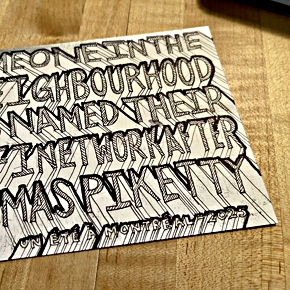 MEONE IN THE
EIGHBOURHOOD
NAMED THEIR
FI NETWORK AFTER
MAS PIKETTY
UN ÉTÉ À MONTRÉAL 2025